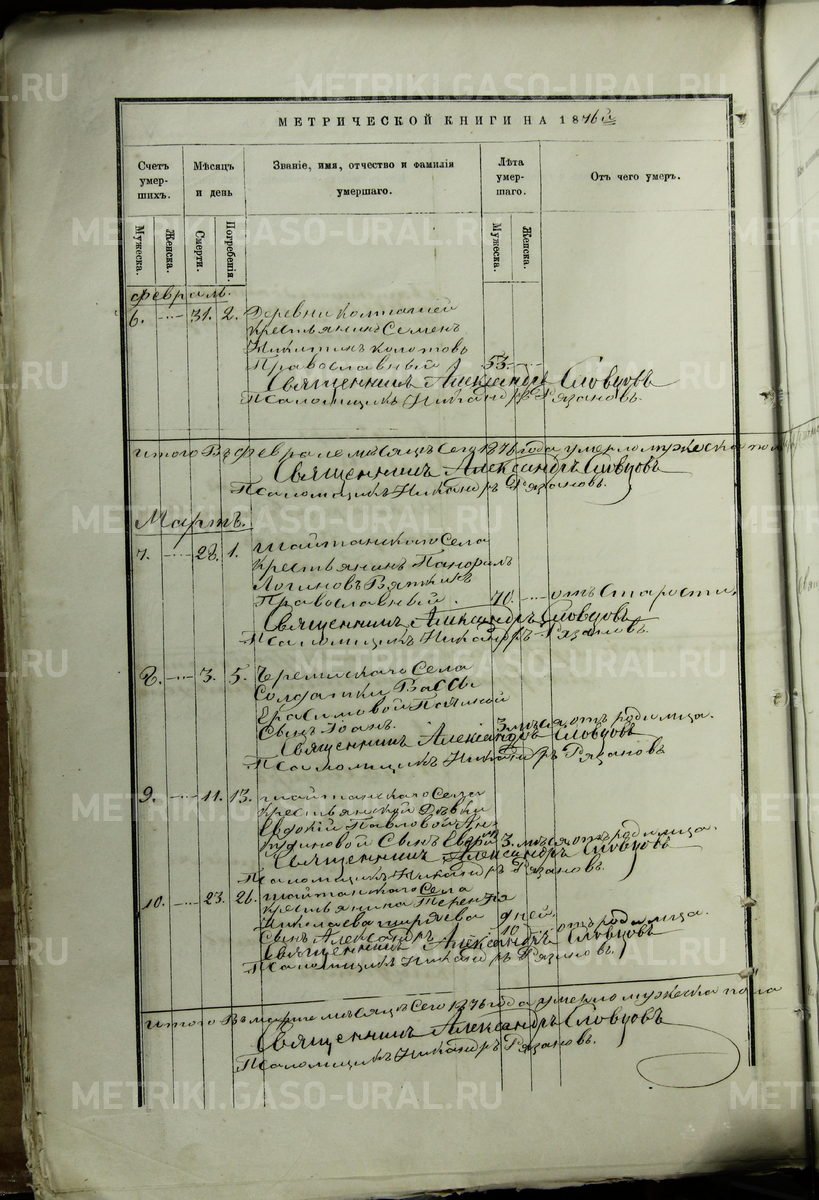 МЕТРИЧЕСКОЙ КНИГИ НА 1876й
Счетъ умер- шихъ.
Мѣсяцъ и день
Званіе, имя, отчество и фамилія умершаго.
Лѣта умер- шаго.
Отъ чего умеръ.
Мужеска. Женска. Смерти. Погребенія. Мужеска. Женска.
февраль.
6. 31. 2. Деревни Колташей
Крестьянинъ Семенъ
Никитинъ Колотовъ
Православный 53.
Священникъ Александръ Словцовъ
Псаломщикъ Никандръ Рязановъ.
итого Въ феврале месяцъ Сего 1876 года умерло мужеска пол
Священникъ Александръ Словцовъ
Псаломщикъ Никандръ Рязановъ.
Мартъ.
7. 28. 1. Шайтанскаго Села
Крестьянинъ Панфилъ
Логиновъ Вяткинъ
Православный. 70. отъ Старости,
Священникъ Александръ Словцовъ
Псаломщикъ Никандръ Рязановъ.
8. 3. 5. Черемискаго Села
Солдатки Вассы
Ерасимовой
Сынъ Іоанъ. 3. м-ця, отъ родимца.
Священникъ Александръ Словцовъ
Псаломщикъ Никандръ Рязановъ
9. 11. 13. Шайтанскаго Села
Крестьянской Дѣвки
Евдокій Павловой
Сынъ 3. м-ця отъ родимца.
Священникъ Александръ Словцовъ
Псаломщикъ Никандръ Рязановъ.
10. 23. 26. Шайтанскаго Села
Крестьянина Терентія
Николаева Ширяева дней
Сынъ Александръ 10 отъ родимца.
Священникъ Александръ Словцовъ
Псаломщикъ Никандръ Рязановъ.
итого Въ марте месяцъ Сего 1876 года умерло мужеска пола
Священникъ Александръ Словцовъ
Псаломщикъ Никандръ Рязановъ.
METRIKI.GASO-URAL.RU